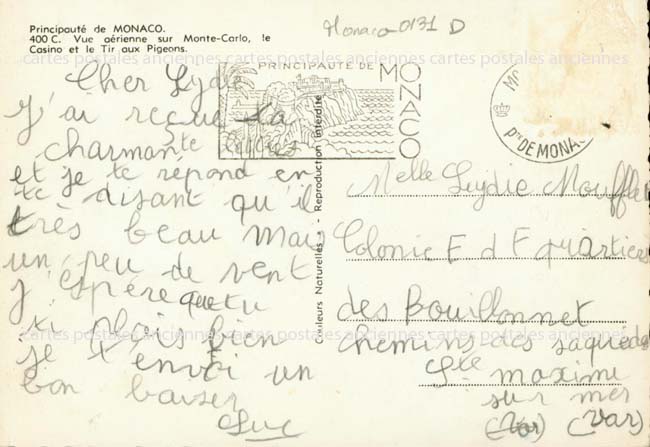 Principauté de MONACO.
400 C. Vue aérienne sur Monte-Carlo, le
Casino et le Tir aux Pigeons.
Monaco 0131 D
cartes postales anciennes cartes postales anciennes cartes postales anciennes
PRINCIPAUTÉ DE MONACO
Pté DE MONA
Cher Lydie
J'ai reçue ta
charmante
et je te répond en
te disant qu'il
très beau mais
un peu de vent
j'espère que tu
bien
je t'envoi un
bon baiser
Luc
Couleurs Naturelles - Reproduction interdite
Melle Lydie Mouffle
Colonie E d F quartier
des Bouillonnet
chemins des saquedes
Ste maxime
sur mer
(Var) (Var)
cartes postales anciennes cartes postales anciennes cartes postales anciennes